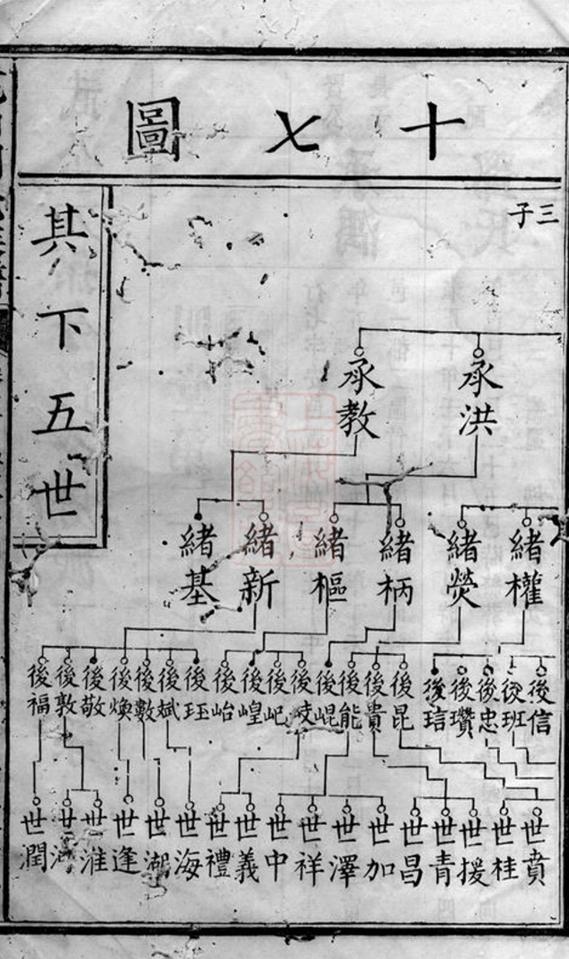 十七圖
三子
其下五世
承洪
承教
緒權
緒熒
緒柄
緒樞
緒新
緒基
後信
後班
後忠
後瓚
後琂
後昆
後貴
後能
後崐
後岐
後屺
後崲
後峆
後珏
後斌
後數
後煥
後敬
後敦
後福
世賁
世桂
世援
世青
世昌
世加
世澤
世祥
世中
世義
世禮
世海
世潮
世逢
世淮
世
世潤